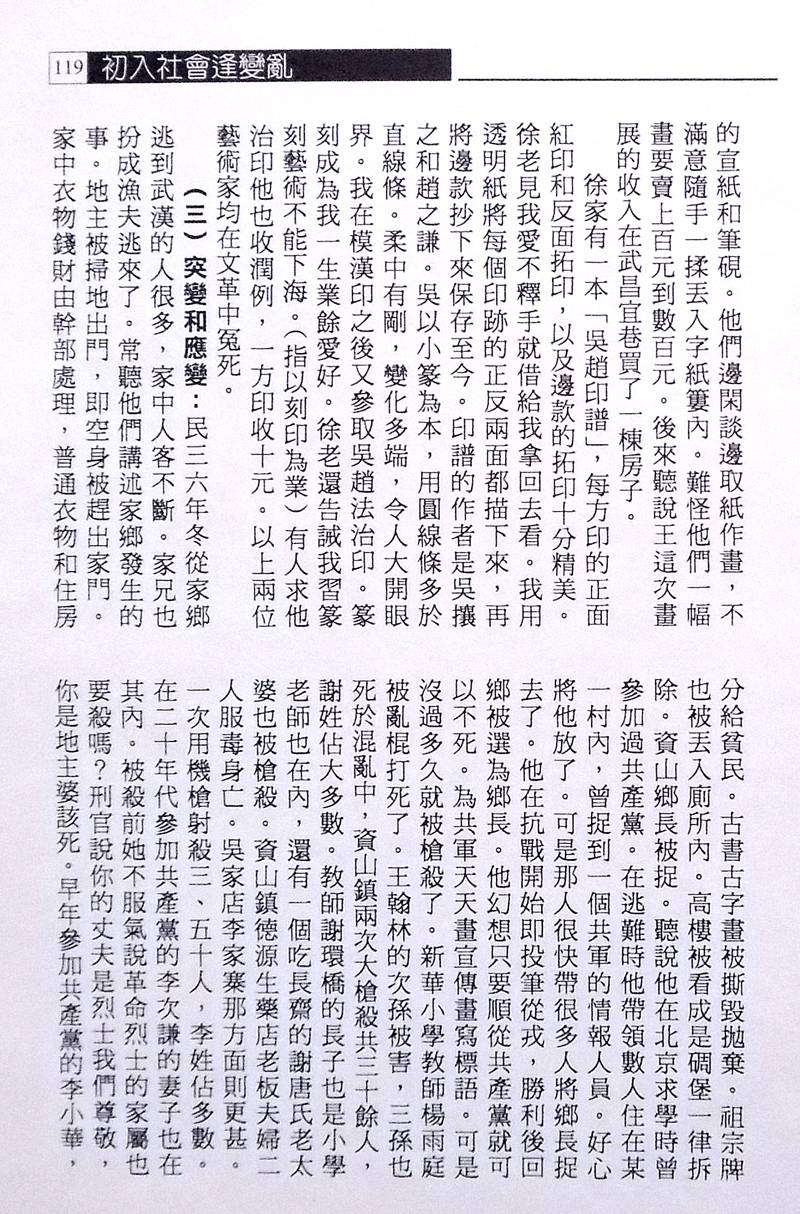 119 初入社會逢變亂
的宣紙和筆硯。他們邊閑談邊取紙作畫，不
滿意隨手一揉丟入字紙簍內。難怪他們一幅
畫要賣上百元到數百元。後來聽說王這次畫
展的收入在武昌宜巷買了一棟房子。
徐家有一本「吳趙印譜」，每方印的正面
紅印和反面拓印，以及邊款的拓印十分精美。
徐老見我愛不釋手就借給我拿回去看。我用
透明紙將每個印跡的正反兩面都描下來，再
將邊款抄下來保存至今。印譜的作者是吳攘
之和趙之謙。吳以小篆為本，用圓線條多於
直線條。柔中有剛，變化多端，令人大開眼
界。我在模漢印之後又參取吳趙法治印。篆
刻成為我一生業餘愛好。徐老還告誡我習篆
刻藝術不能下海。（指以刻印為業）有人求他
治印他也收潤例，一方印收十元。以上兩位
藝術家均在文革中冤死。
（三）突變和應變：民三六年冬從家鄉
逃到武漢的人很多，家中人客不斷。家兄也
扮成漁夫逃來了。常聽他們講述家鄉發生的
事。地主被掃地出門，即空身被趕出家門。
家中衣物錢財由幹部處理，普通衣物和住房
分給貧民。古書古字畫被撕毀拋棄。祖宗牌
也被丟入廁所內。高樓被看成是碉堡一律拆
除。資山鄉長被捉。聽說他在北京求學時曾
參加過共產黨。在逃難時他帶領數人住在某
一村內，曾捉到一個共軍的情報人員。好心
將他放了。可是那人很快帶很多人將鄉長捉
去了。他在抗戰開始即投筆從戎，勝利後回
鄉被選為鄉長。他幻想只要順從共產黨就可
以不死。為共軍天天畫宣傳畫寫標語。可是
沒過多久就被槍殺了。新華小學教師楊雨庭
被亂棍打死了。王翰林的次孫被害，三孫也
死於混亂中，資山鎮兩次大槍殺共三十餘人，
謝姓佔大多數。教師謝環橋的長子也是小學
老師也在內，還有一個吃長齋的謝唐氏老太
婆也被槍殺。資山鎮德源生藥店老板夫婦二
人服毒身亡。吳家店李家寨那方面則更甚。
一次用機槍射殺三、五十人，李姓佔多數。
在二十年代參加共產黨的李次謙的妻子也在
其內。被殺前她不服氣說革命烈士的家屬也
要殺嗎？刑官說你的丈夫是烈士我們尊敬，
你是地主婆該死。早年參加共產黨的李小華，